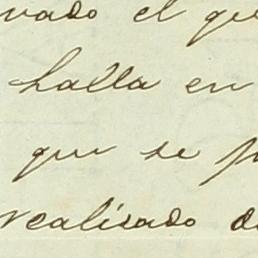 vado el que
halla en
que se p
realisado de